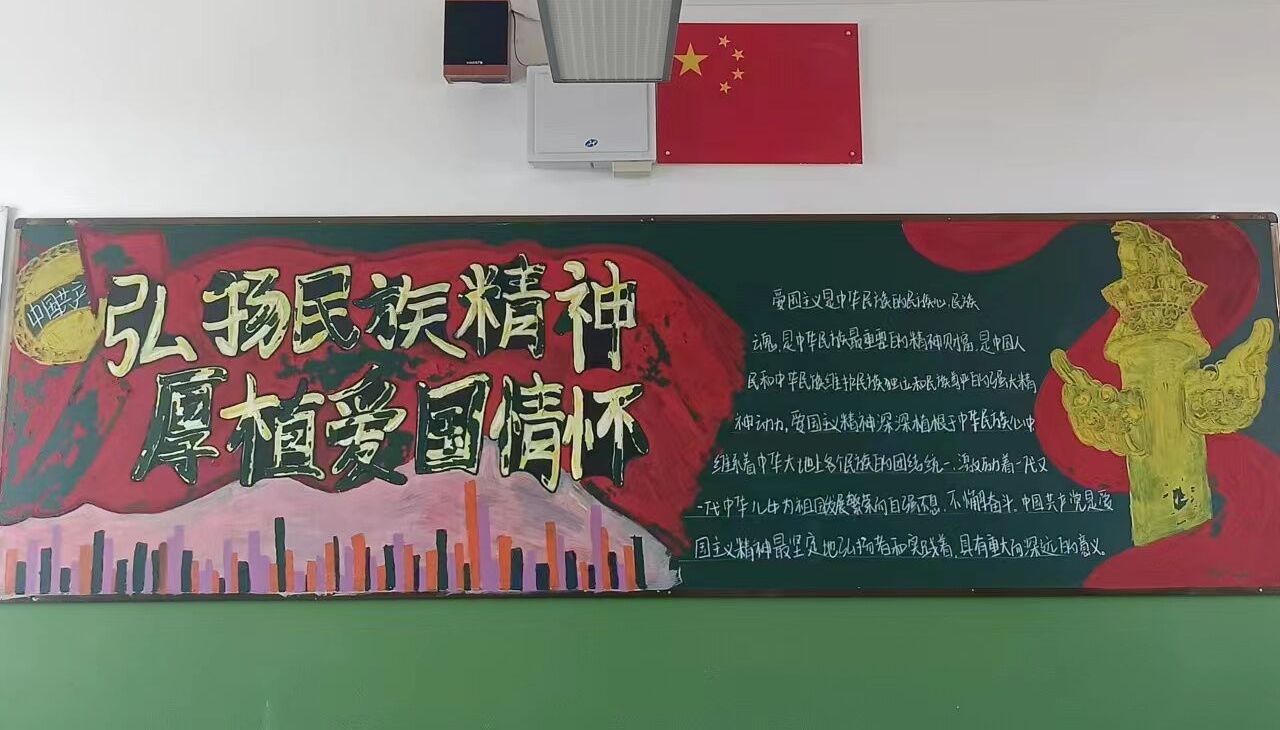 中国共产
弘扬民族精神
厚植爱国情怀
爱国主义是中华民族的民族心、民族
魂,是中华民族最重要的精神财富,是中国人
民和中华民族维护民族独立和民族尊严的强大精
神动力,爱国主义精神深深植根于中华民族心中
维系着中华大地上各个民族的团结统一,激励着一代又
一代中华儿女为祖国发展繁荣而自强不息、不懈奋斗。中国共产党是爱
国主义精神最坚定地弘扬者和实践着,具有重大而深远的意义。